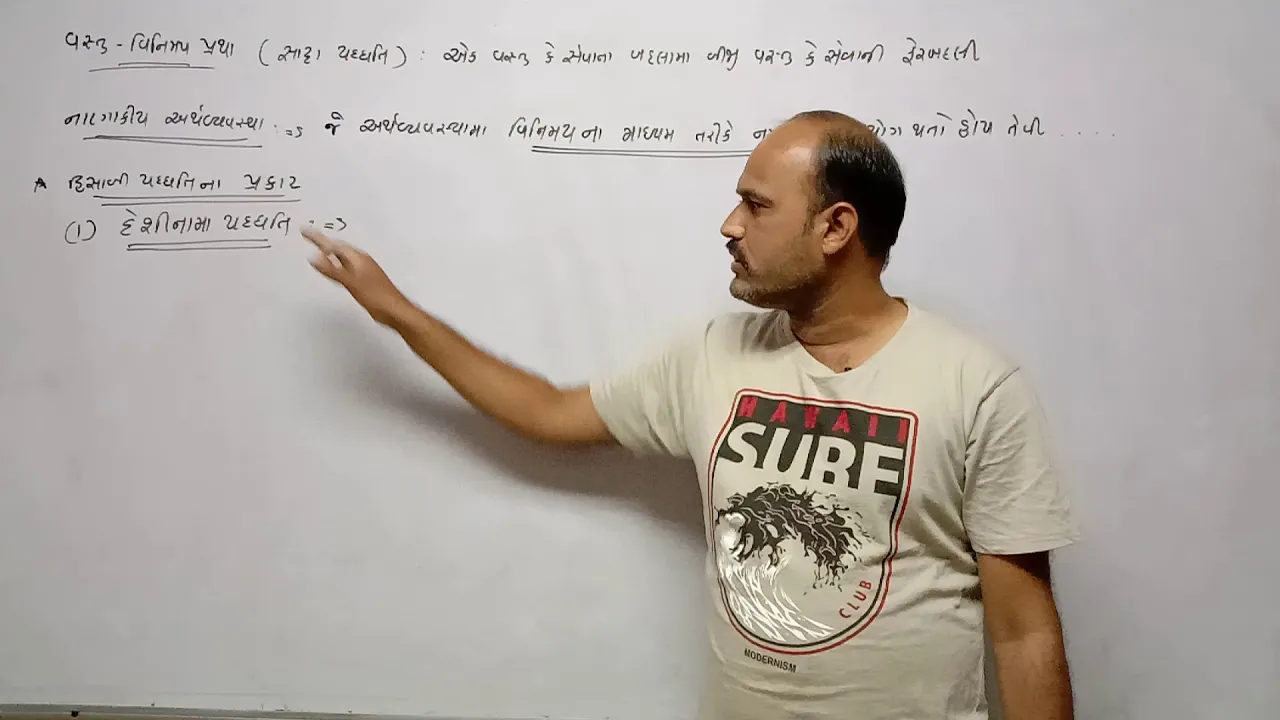 વસ્તુ - વિનિમય પ્રથા ( સાટા પધ્ધતિ ) : એક વસ્તુ કે સેવાના બદલામા બીજી વસ્તુ કે સેવાની ફેરબદલી
નાણાકીય અર્થવ્યવસ્થા :=> જે અર્થવ્યવસ્થામા વિનિમયના માધ્યમ તરીકે થતો હોય તેવી . . . .
હિસાબી પધ્ધતિના પ્રકાર
(1) દેશીનામા પધ્ધતિ :=>
HAWAII
SURF
CLUB
MODERNISM